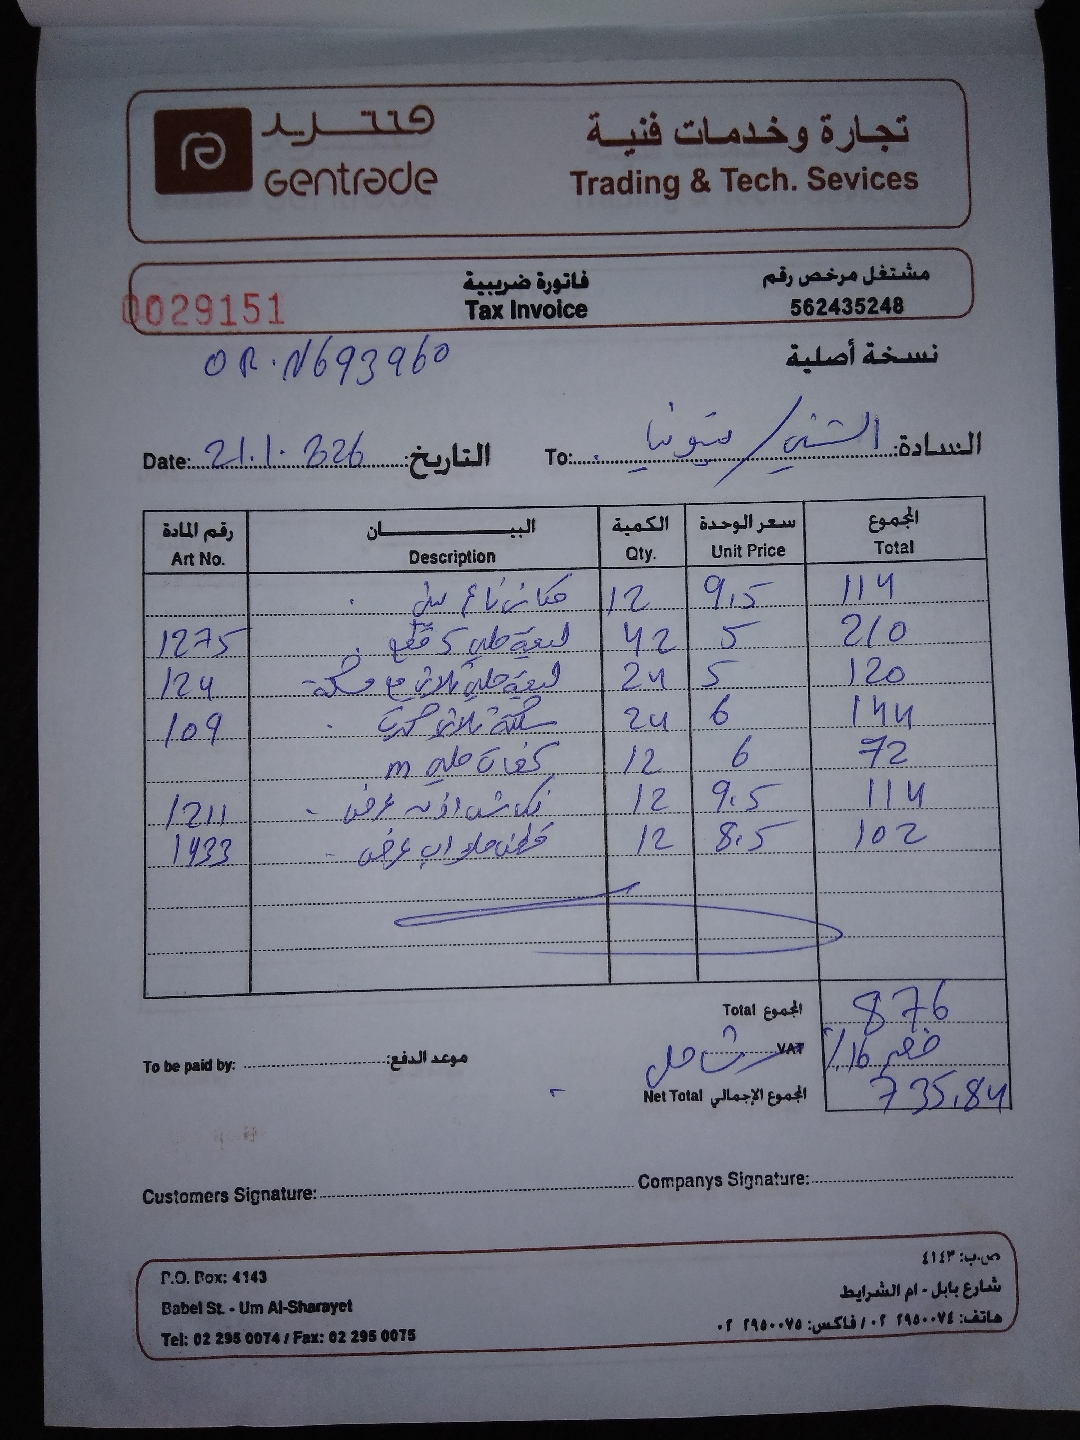 جنتريد
Gentrade
تجارة وخدمات فنية
Trading & Tech. Sevices
0029151
فاتورة ضريبية
Tax Invoice
مشتغل مرخص رقم
562435248
OR.N693960
نسخة أصلية
Date: 21.1.2026 التاريخ:
To: السادة: الشني /
رقم المادة البيـــــــان الكمية سعر الوحدة المجموع
Art No. Description Qty. Unit Price Total
12 9.5 114
1275 قطع 42 5 210
124 ليفة جلي ثلاث مع 24 5 120
109 ثلاث 24 6 144
كفات جلي m 12 6 72
1211 عرض 12 9.5 114
1433 عرض 12 8.5 102
Total المجموع 876
VAT شامل خصم 16%
To be paid by: موعد الدفع:
Net Total المجموع الإجمالي 735.84
Customers Signature: Companys Signature:
P.O. Box: 4143
Babel St. - Um Al-Sharayet
Tel: 02 295 0074 / Fax: 02 295 0075
ص.ب: ٤١٤٣
شارع بابل - ام الشرايط
هاتف: ٢٩٥٠٠٧٤ ٠٢ / فاكس: ٢٩٥٠٠٧٥ ٠٢